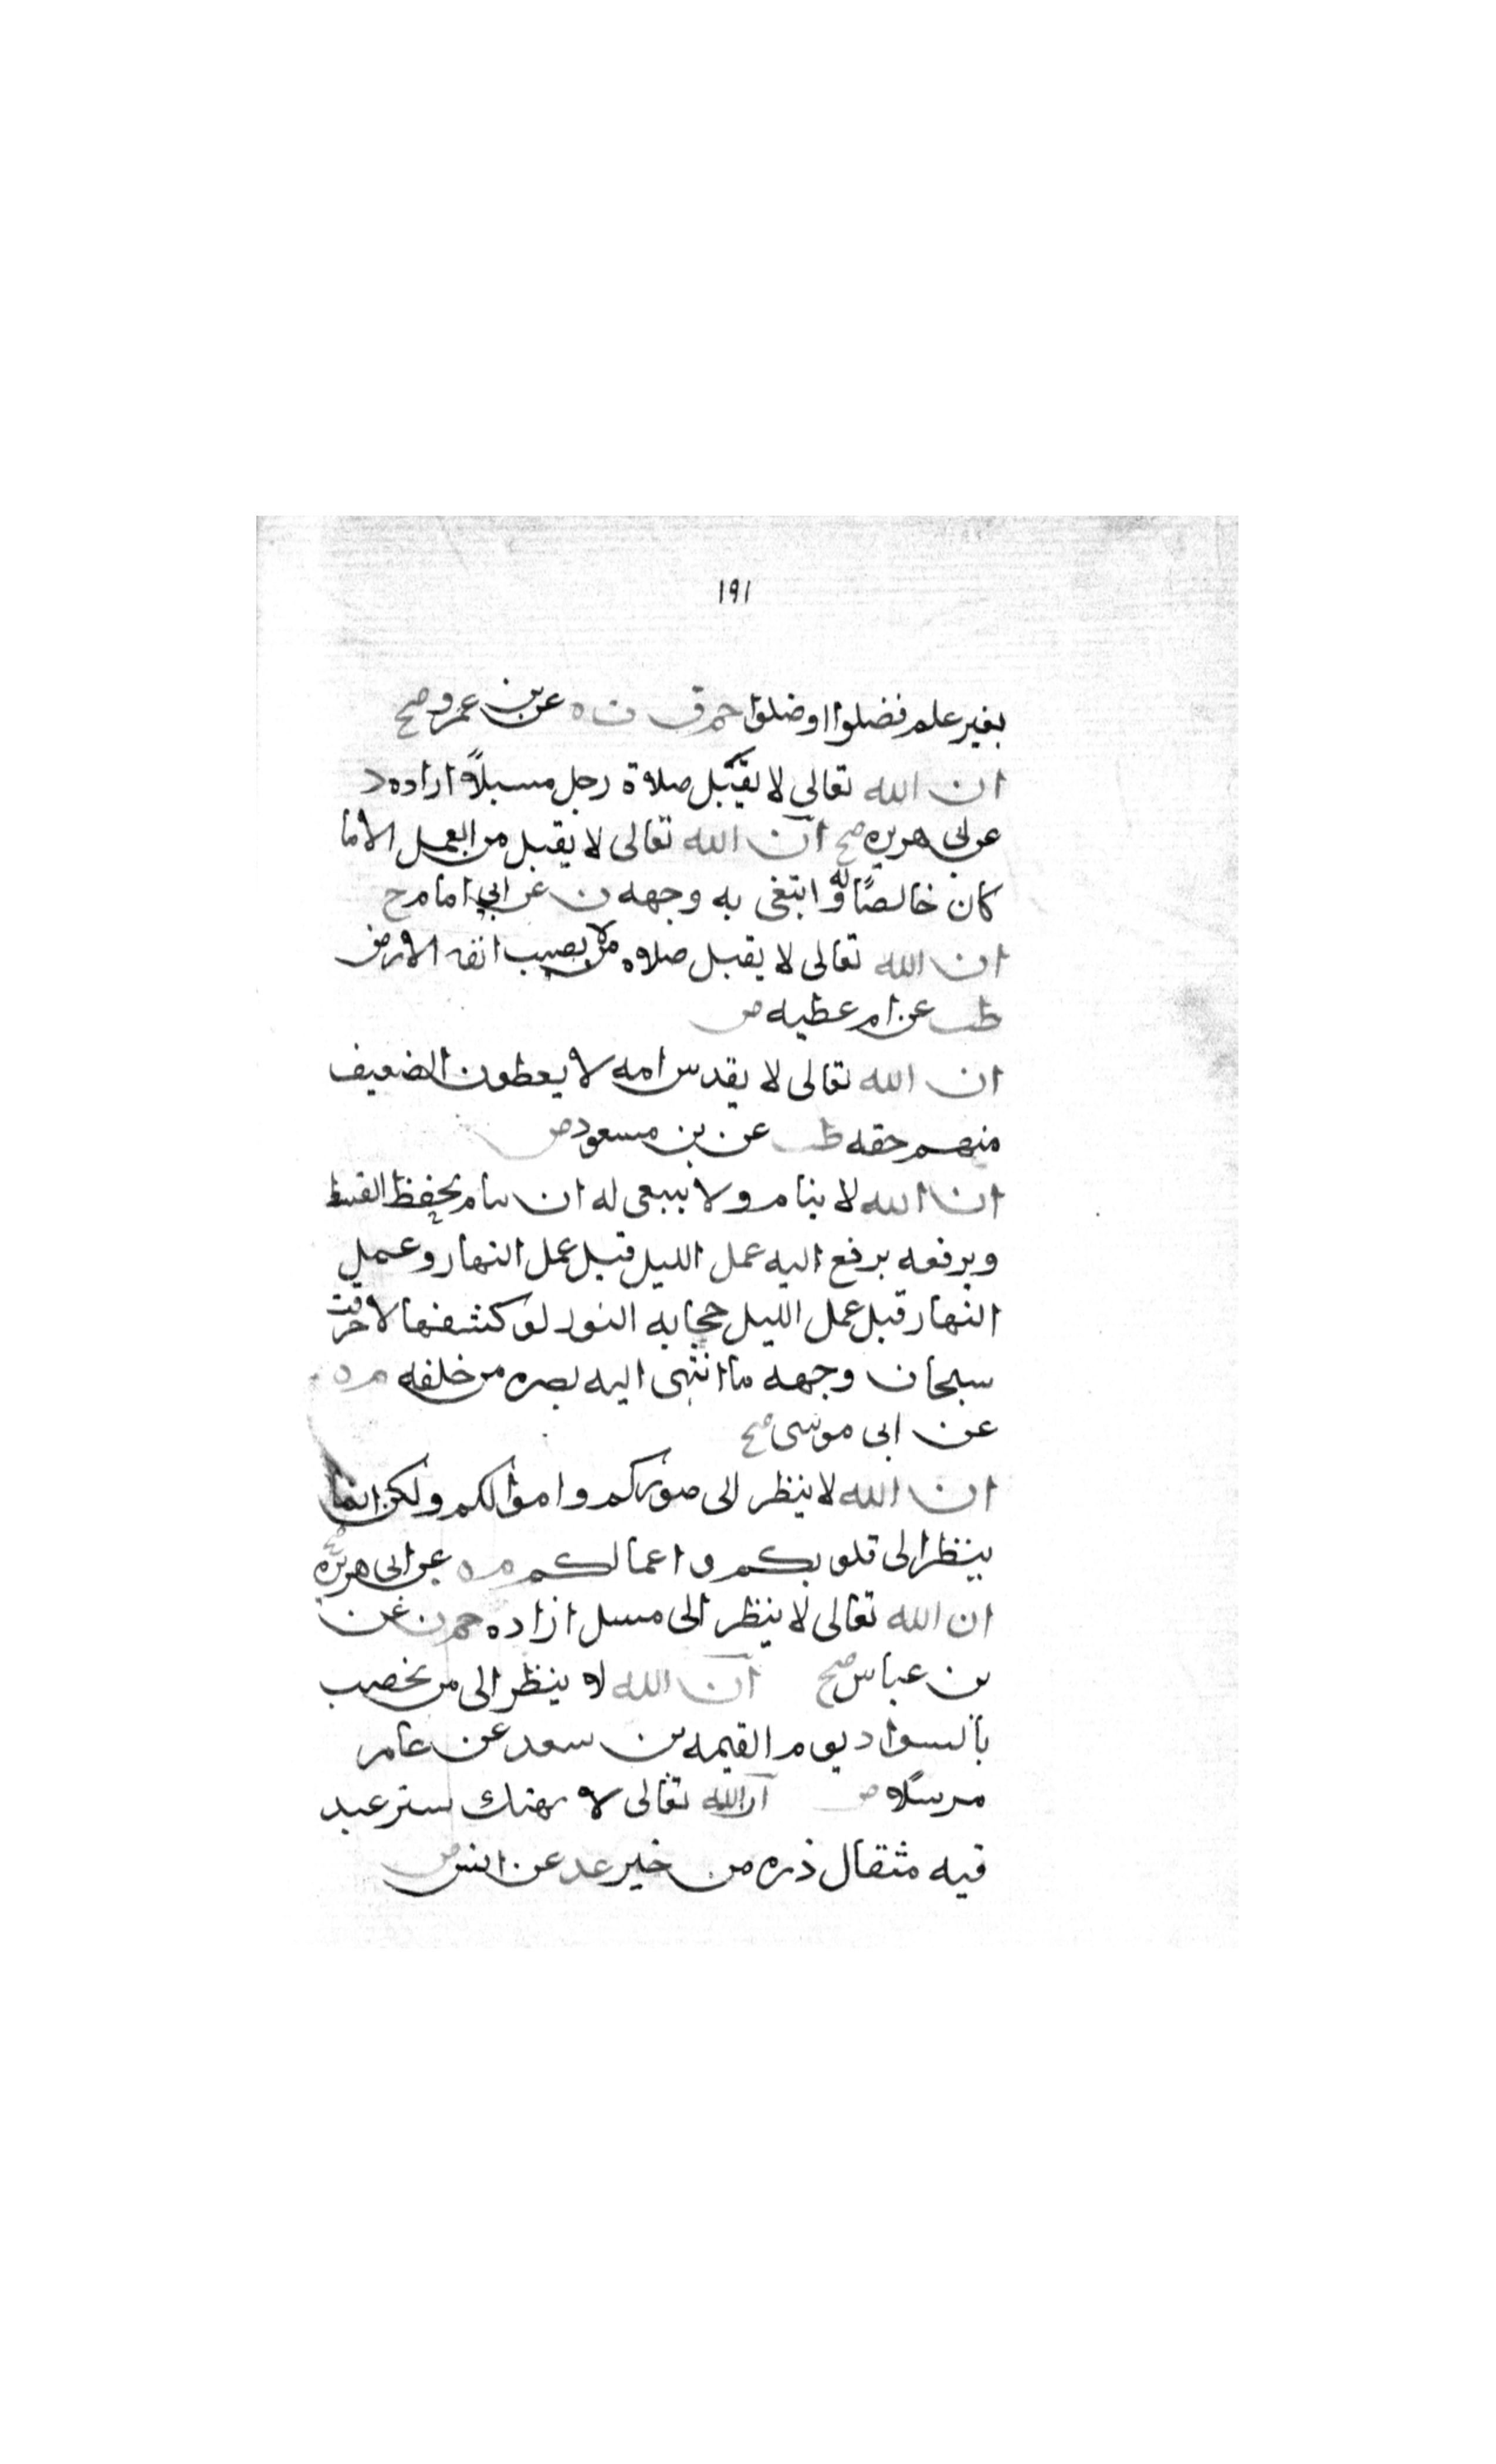 ١٩١
بغير علم فضلوا اوضلوا حم ق ت ه عن بن عمرو صح
ان الله تعالى لا يقبل صلاة رجل مسبلاً ازاره د
عن ابي هريره صح ان الله تعالى لا يقبل من العمل الا ما
كان خالصًا له وابتغى به وجهه ن عن ابي امامه ح
ان الله تعالى لا يقبل صلاه من لا يصيب انفه الارض
طب عن ام عطيه ض
ان الله تعالى لا يقدس امه لا يعطون الضعيف
منهم حقه طب عن بن مسعود ض
ان الله لا ينام ولا ينبغى له ان ينام يخفظ القسط
ويرفعه يرفع اليه عمل الليل قبل عمل النهار وعمل
النهار قبل عمل الليل حجابه النور لو كشفها لاحرقت
سبحات وجهه ما انتهى اليه بصره من خلقه م ه
عن ابى موسى صح
ان الله لا ينظر الى صوركم واموالكم ولكن انما
ينظر الى قلوبكم واعمالكم م ه عن ابى هريره صح
ان الله تعالى لا ينظر الى مسبل ازاره حم ن عن
بن عباس صح ان الله لا ينظر الى من يخضب
بالسواد يوم القيمه بن سعد عن عامر
مرسلا ض ان الله تعالى لا يهتك ستر عبد
فيه مثقال ذره من خير عد عن انس ض